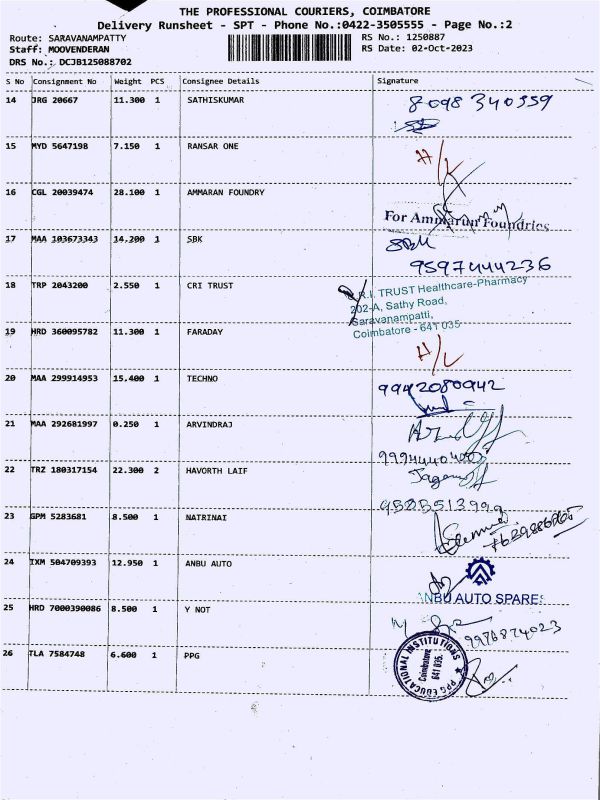 THE PROFESSIONAL COURIERS, COIMBATORE
Delivery Runsheet - SPT - Phone No.:0422-3505555 - Page No.:2
Route: SARAVANAMPATTY RS No.: 1250887
Staff: MOOVENDERAN RS Date: 02-Oct-2023
DRS No.: DCJB125088702
S No Consignment No Weight PCS Consignee Details Signature
14 JRG 20667 11.300 1 SATHISKUMAR 8098 340559
15 MYD 5647198 7.150 1 RANSAR ONE
16 CGL 20039474 28.100 1 AMMARAN FOUNDRY
For Ammarun Foundries
17 MAA 103673343 14.200 1 SBK SBK
9597444236
18 TRP 2043200 2.550 1 CRI TRUST
C.R.I. TRUST Healthcare-Pharmacy
202-A, Sathy Road,
Saravanampatti,
Coimbatore - 641 035
19 HRD 360095782 11.300 1 FARADAY
20 MAA 299914953 15.400 1 TECHNO 9942080942
21 MAA 292681997 0.250 1 ARVINDRAJ
22 TRZ 180317154 22.300 2 HAVORTH LAIF
23 GPM 5283681 8.500 1 NATRINAI
24 IXM 504709393 12.950 1 ANBU AUTO
ANBU AUTO SPARES
25 HRD 7000390086 8.500 1 Y NOT
9976874023
26 TLA 7584748 6.600 1 PPG
PPG EDUCATIONAL INSTITUTIONS
Coimbatore
641 035.